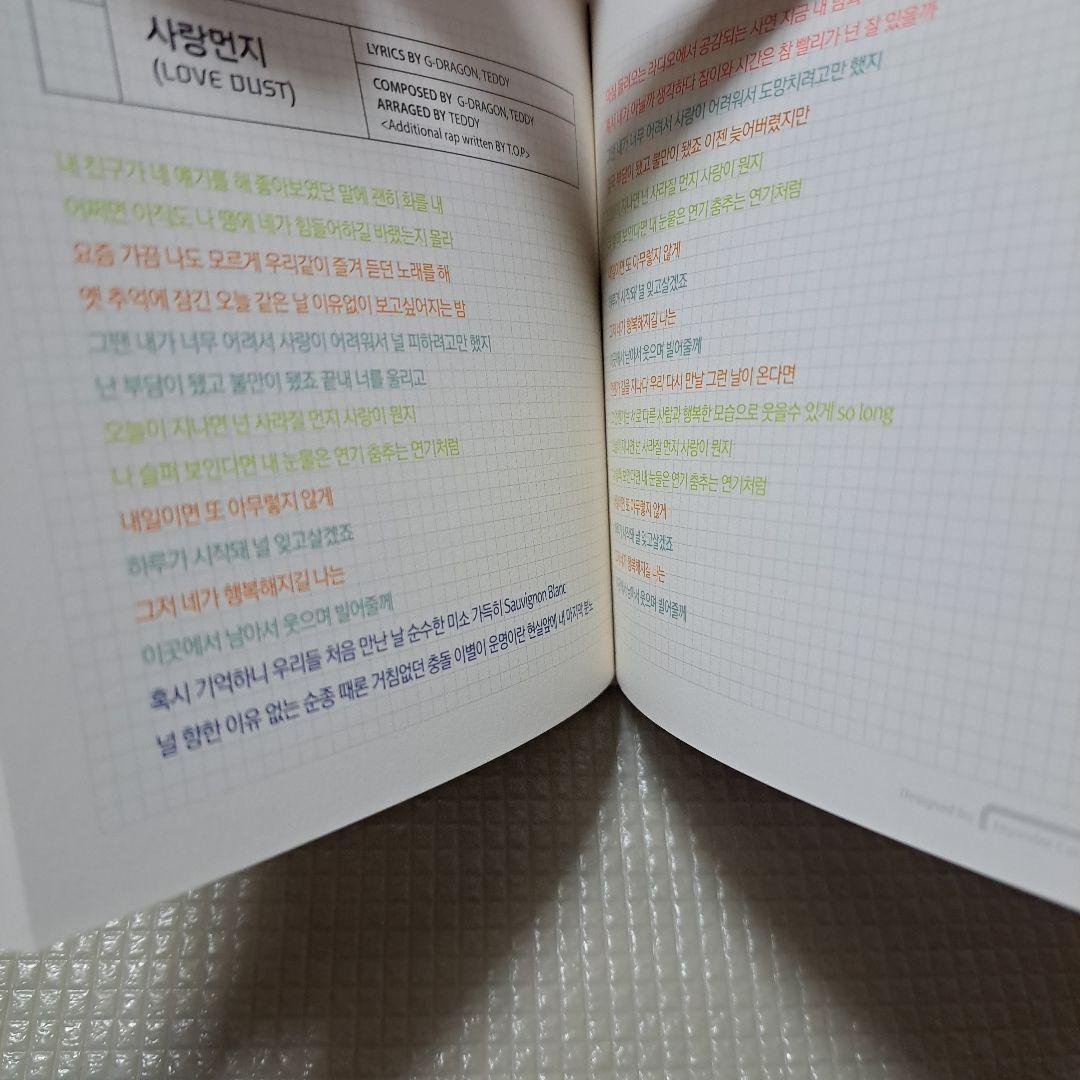 사랑먼지
(LOVE DUST)
LYRICS BY G-DRAGON, TEDDY
COMPOSED BY G-DRAGON, TEDDY
ARRAGED BY TEDDY
<Additional rap written BY T.O.P>
내 친구가 네 얘기를 해 좋아보였단 말에 괜히 화를 내
어쩌면 아직도 나 땜에 네가 힘들어하길 바랬는지 몰라
요즘 가끔 나도 모르게 우리같이 즐겨 듣던 노래를 해
옛 추억에 잠긴 오늘 같은 날 이유없이 보고싶어지는 밤
그땐 내가 너무 어려서 사랑이 어려워서 널 피하려고만 했지
난 부담이 됐고 불만이 됐죠 끝내 너를 울리고
오늘이 지나면 넌 사라질 먼지 사랑이 뭔지
나 슬퍼 보인다면 내 눈물은 연기 춤추는 연기처럼
내일이면 또 아무렇지 않게
하루가 시작돼 널 잊고살겠죠
그저 네가 행복해지길 나는
이곳에서 남아서 웃으며 빌어줄께
혹시 기억하니 우리들 처음 만난 날 순수한 미소 가득히 Sauvignon Blanc
널 향한 이유 없는 순종 때론 거침없던 충돌 이별이 운명이란 현실앞에 내 마지막 분노
들려오는 라디오에서 공감되는 사연 지금 내
내가 아닐까 생각하다 잠이와 시간은 참 빨리가 넌 잘 있을까
내가 너무 어려서 사랑이 어려워서 도망치려고만 했지
부담이 됐고 불만이 됐죠 이젠 늦어버렸지만
지나면 넌 사라질 먼지 사랑이 뭔지
보인다면 내 눈물은 연기 춤추는 연기처럼
내일이면 또 아무렇지 않게
하루가 시작돼 널 잊고살겠죠
그저 네가 행복해지길 나는
이곳에서 남아서 웃으며 빌어줄께
길을 지나다 우리 다시 만날 그런 날이 온다면
서로 다른 사람과 행복한 모습으로 웃을수 있게 so long
지나면 넌 사라질 먼지 사랑이 뭔지
보인다면 내 눈물은 연기 춤추는 연기처럼
또 아무렇지 않게
시작돼 널 잊고살겠죠
그저 네가 행복해지길 나는
남아서 웃으며 빌어줄께
Designed by